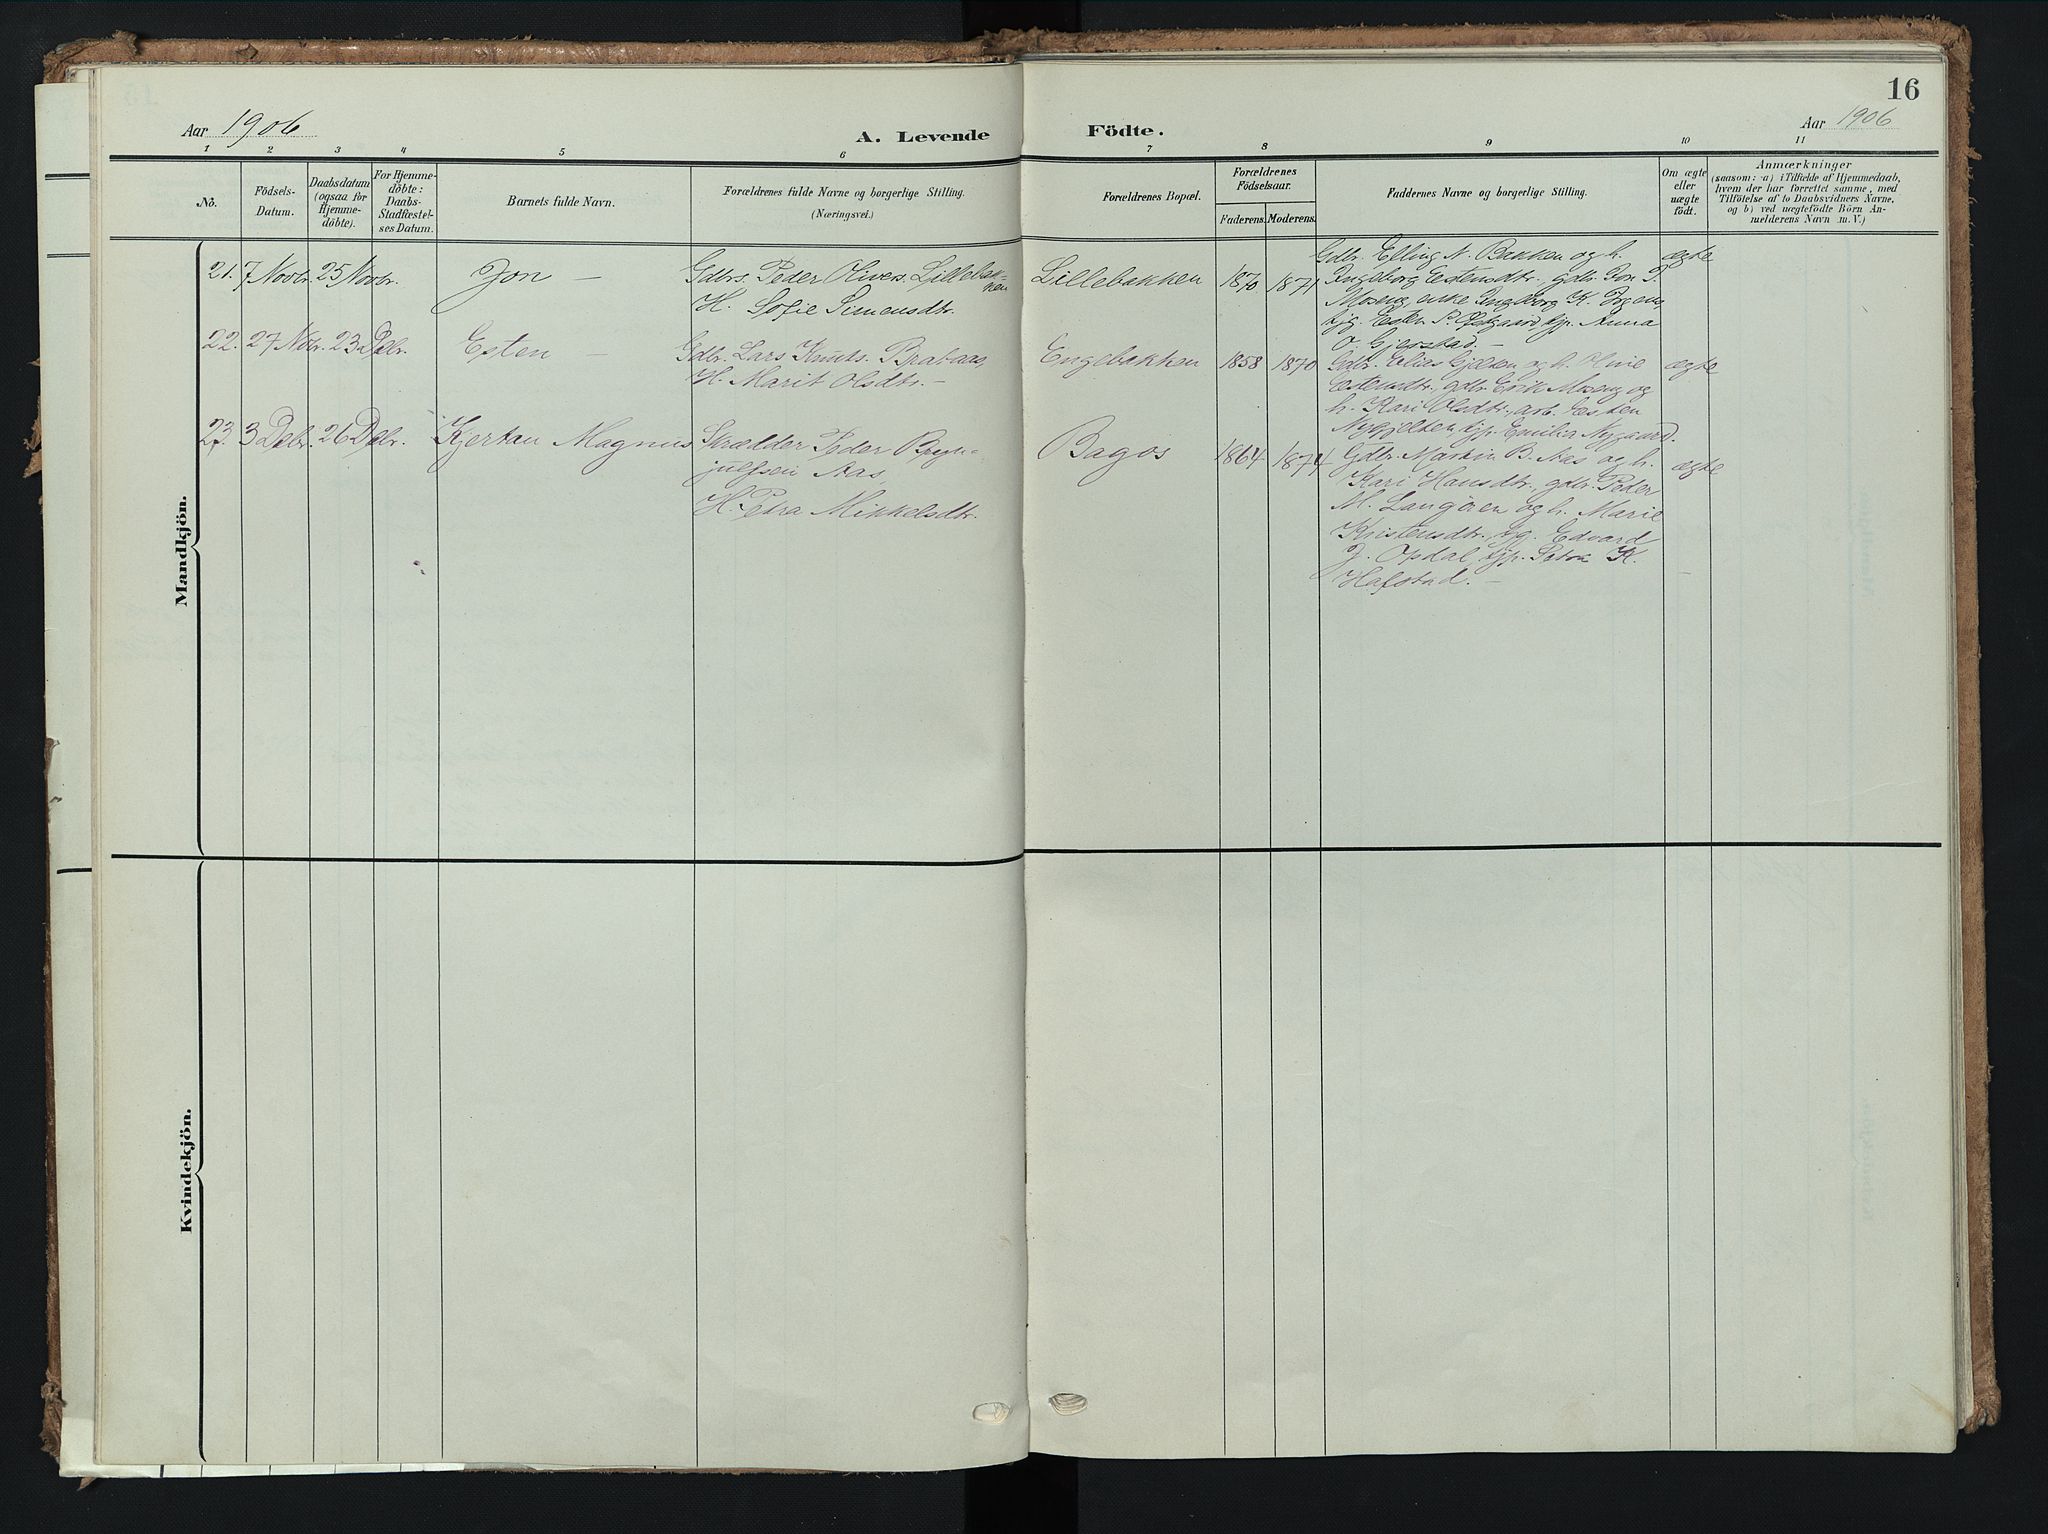 16
Aar 1906
A. Levende Födte.
Aar 1906
1 2 3 4 5 6 7 8 9 10 11
No.
Födsels-
Datum.
Daabsdatum
(ogsaa for
Hjemme-
döbte).
For Hjemme-
döbte:
Daabs-
Stadfæstel-
ses Datum.
Barnets fulde Navn.
Forældrenes fulde Navne og borgerlige Stilling.
(Næringsvei.)
Forældrenes Bopæl.
Forældrenes
Födselsaar.
Faderens. Moderens.
Faddernes Navne og borgerlige Stilling.
Om ægte
eller
uægte
födt.
Anmærkninger
(saasom: a) i Tilfælde af Hjemmedaab,
hvem der har forrettet samme, med
Tilföielse af to Daabsvidners Navne,
og b) ved uægtefödte Börn An-
melderens Navn m. V.)
Mandkjön.
21. 7 Novbr. 25 Novbr. Jon —
Gdbrs. Peder Olivers. Lillebak-
ken
H. Sofie Simensdtr.
Lillebakken 1870 1871
Gdbr. Elling N. Bakken og h.
Ingeborg Estensdtr. gdbr. Jon P.
Moseng, enke Ingeborg K.
Esten P. Østgaard, tjp. Anna
O. Gjerstad. —
ægte
22. 27 Nobr. 23 Debr. Esten —
Gdbr. Lars Knuts. Brataas,
H. Marit Olsdtr. —
Engebakken 1858 1870
Gdbr. Elias Gjelten og h. Oline
Estensdtr., gdbr. Erik Moseng og
h. Kari Olsdtr., arb. Esten
Nygjelten, tjp. Emilie Nygaard.
ægte
23. 3 Debr. 26 Debr. Kjertan Magnus
Skrædder Peder Bryn-
julfsen Aas,
H. Petra Mikkelsdtr.
Bagos 1864 1874
Gdbr. Martin B. Aas og h.
Kari Hansdtr., gdbr. Peder
M. Langören og h. Marie
Kristensdtr., Edvard
J. Opdal, tjp. K.
Hafstad. —
ægte
Kvindekjön.